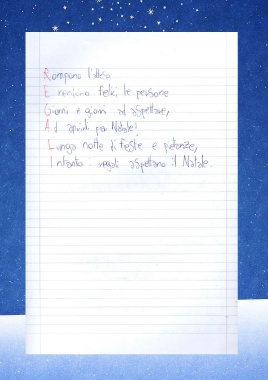 Rompono l'attesa
E rendono felici le persone
Giorni e giorni ad aspettare,
Ad aprirli per Natale!
Lunga notte di feste e pietanze,
Intanto i regali aspettano il Natale.